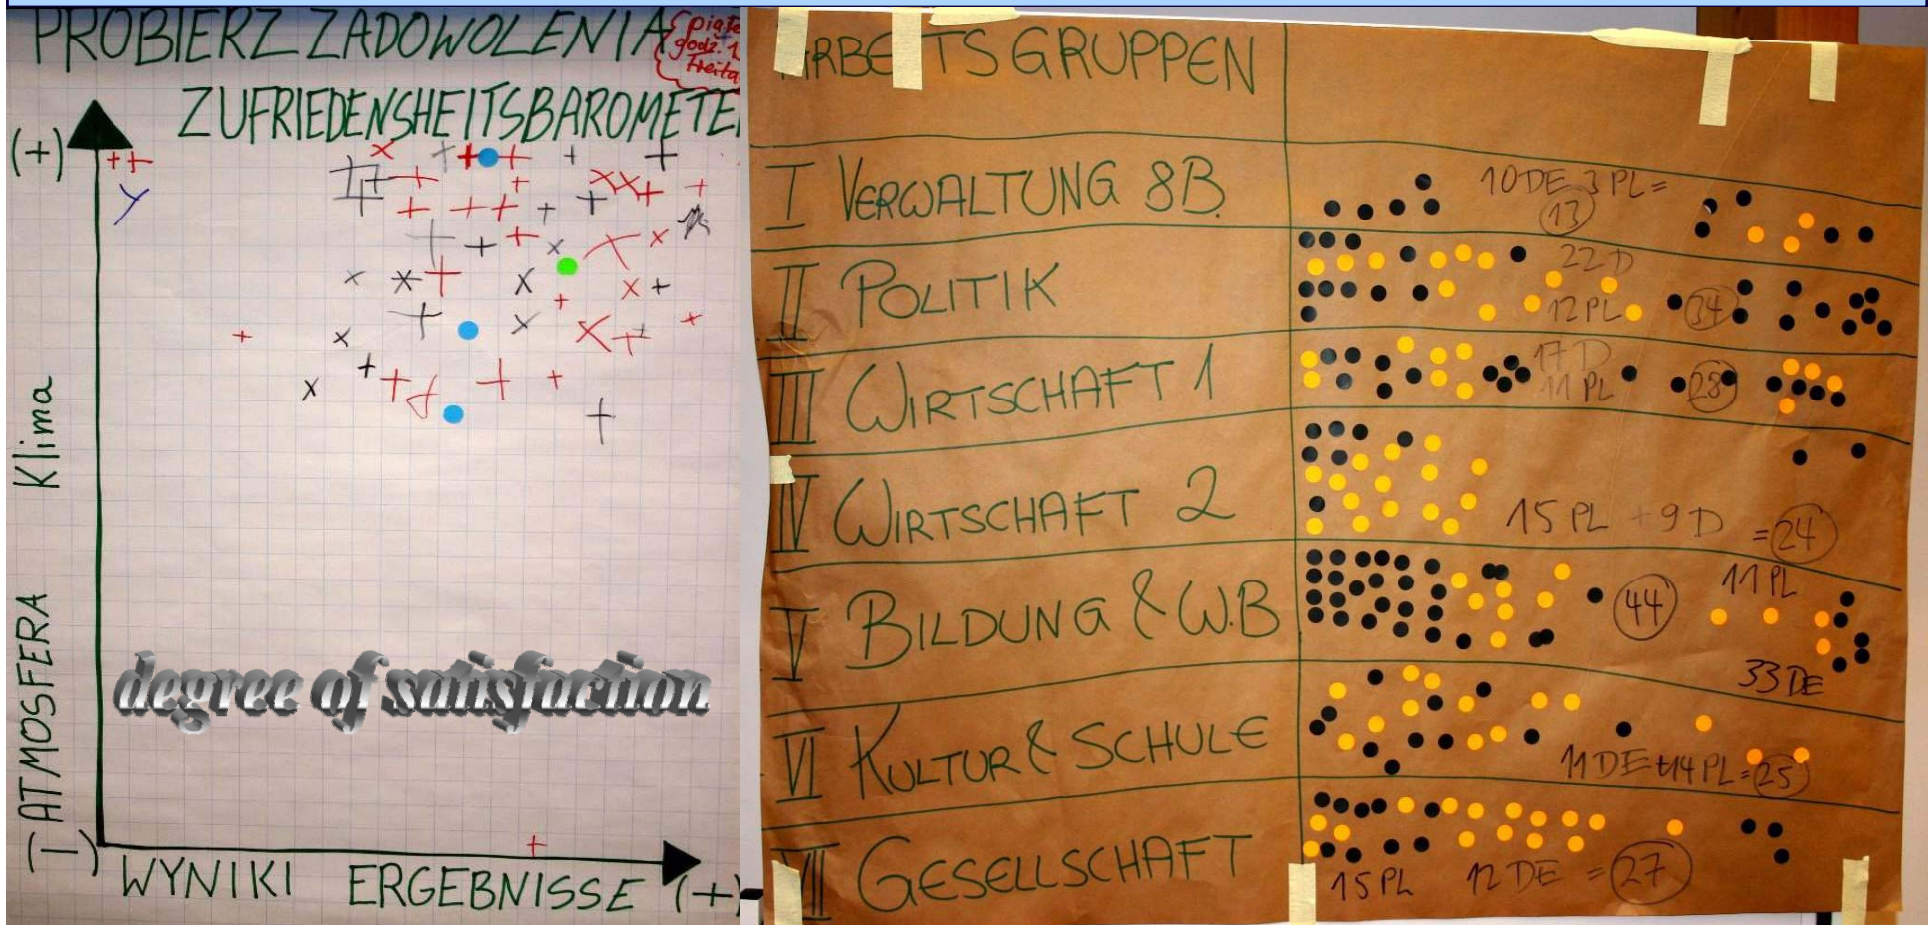 PROBIERZ ZADOWOLENIA
godz. 1
ZUFRIEDENSHEITSBAROMETE
(+)
Klima
ATMOSFERA
(-)
degree of satisfaction
WYNIKI ERGEBNISSE (+)
ARBEITSGRUPPEN
I VERWALTUNG 8B.
10 DE 3 PL =
13
II POLITIK
22 D
12 PL
34
III WIRTSCHAFT 1
17 D
11 PL
28
IV WIRTSCHAFT 2
15 PL + 9 D = 24
V BILDUNG & W.B
44
11 PL
33 DE
VI KULTUR & SCHULE
11 DE + 14 PL = 25
VII GESELLSCHAFT
15 PL 12 DE = 27